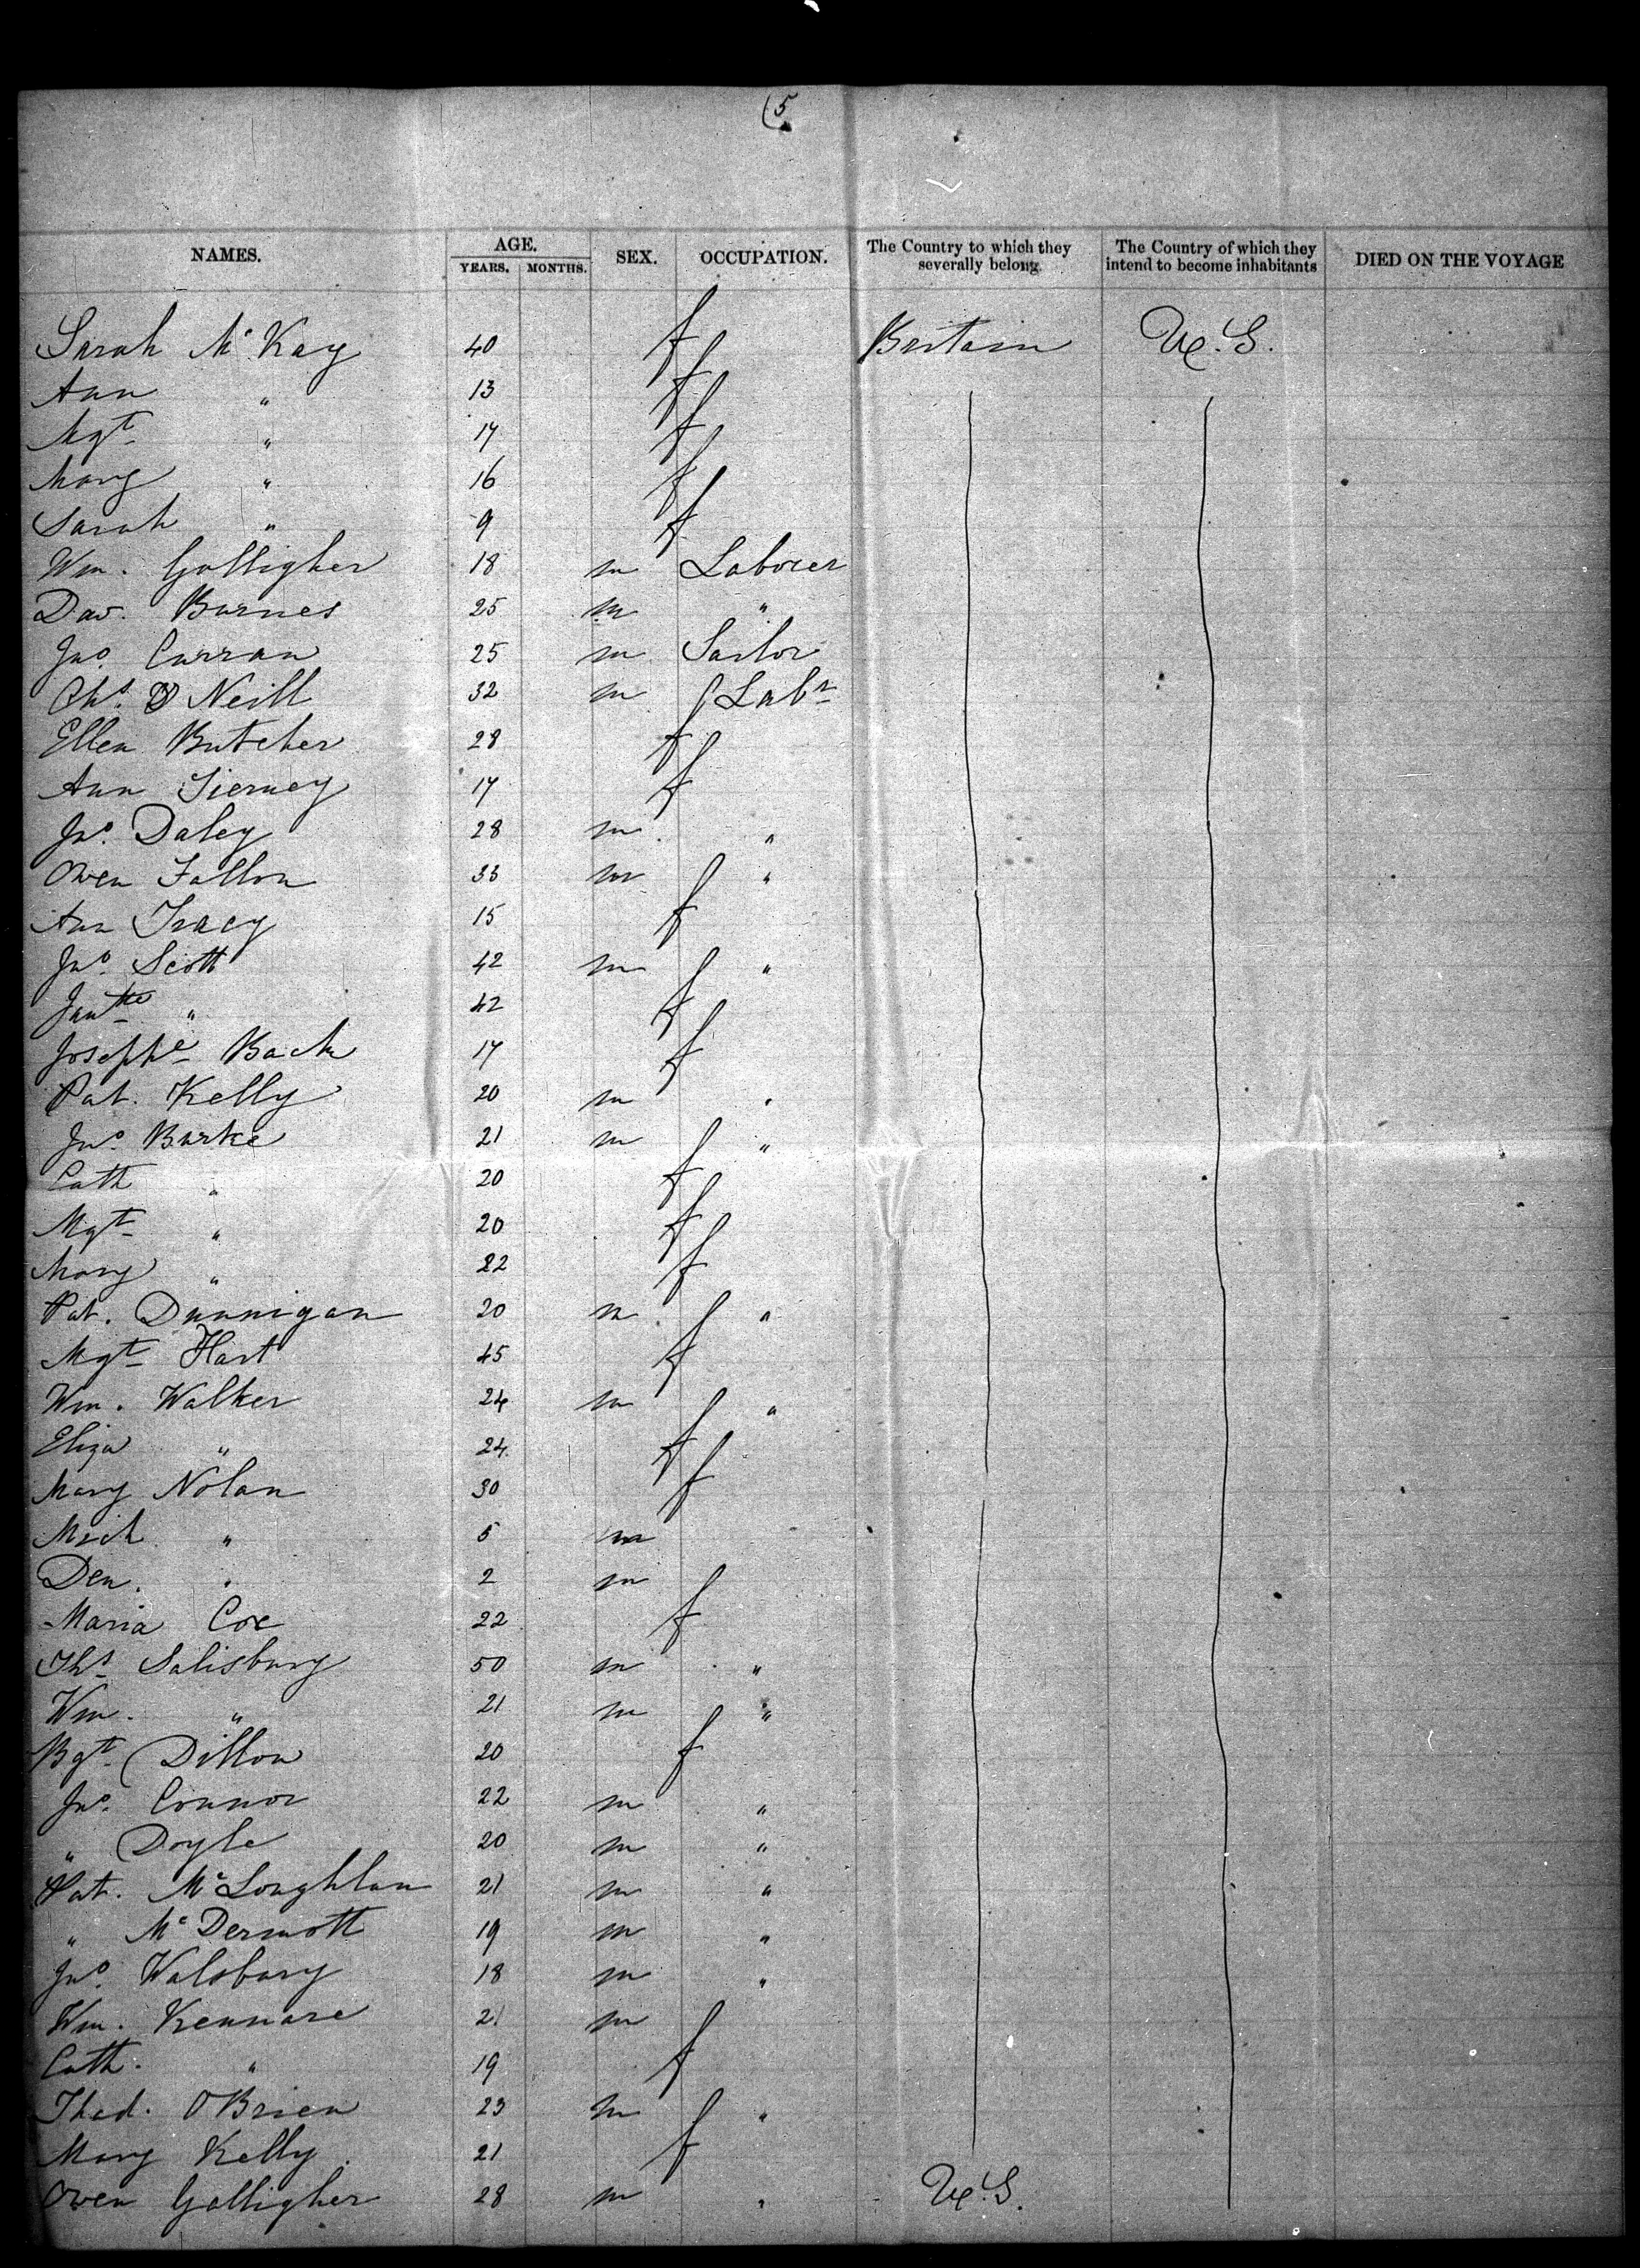 (5
NAMES. AGE. SEX. OCCUPATION. The Country to which they severally belong. The Country of which they intend to become inhabitants DIED ON THE VOYAGE
YEARS. MONTHS.
Sarah McKay 40 f Britain U.S.
Ann " 13 f
Mgt " 17 f
Mary " 16 f
Sarah " 9 f
Wm. Golligher 18 m Laborer
Dav. Burnes 25 m "
Jno. Curran 25 m Sailor
Chs. O'Neill 32 m Labr
Ellen Butcher 28 f
Ann Tierney 17 f
Jno. Daley 28 m "
Owen Fallon 33 m "
Ann Tracy 15 f
Jno. Scott 42 m "
Jantte " 42 f
Josephe Back 17 f
Pat. Kelly 20 m "
Jno. Burke 21 m "
Cath " 20 f
Mgt " 20 f
Mary " 22 f
Pat. Dunnigan 20 m "
Mgt Hart 45 f
Wm. Walker 24 m "
Eliza " 24 f
Mary Nolan 30 f
Mich " 5 m
Den. " 2 m
Maria Coe 22 f
Ths Salisbury 50 m "
Wm. " 21 m "
Bgt Dillon 20 f
Jno. Connor 22 m "
" Doyle 20 m "
Pat. McLoughlan 21 m "
" McDermott 19 m "
Jno. Walsbury 18 m "
Wm. Kennare 21 m
Cath. " 19 f
Thad. O'Brien 23 m "
Mary Kelly 21 f
Owen Golligher 28 m " U.S.